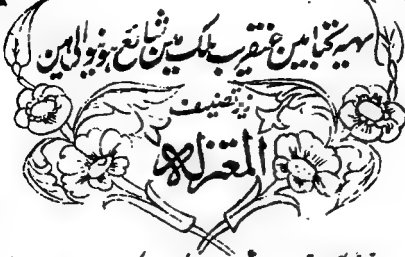 یہہ کتابین عنقریب ملک مین شائع ہونیوالی ہین
زیر تصنیف
المعتزلہ